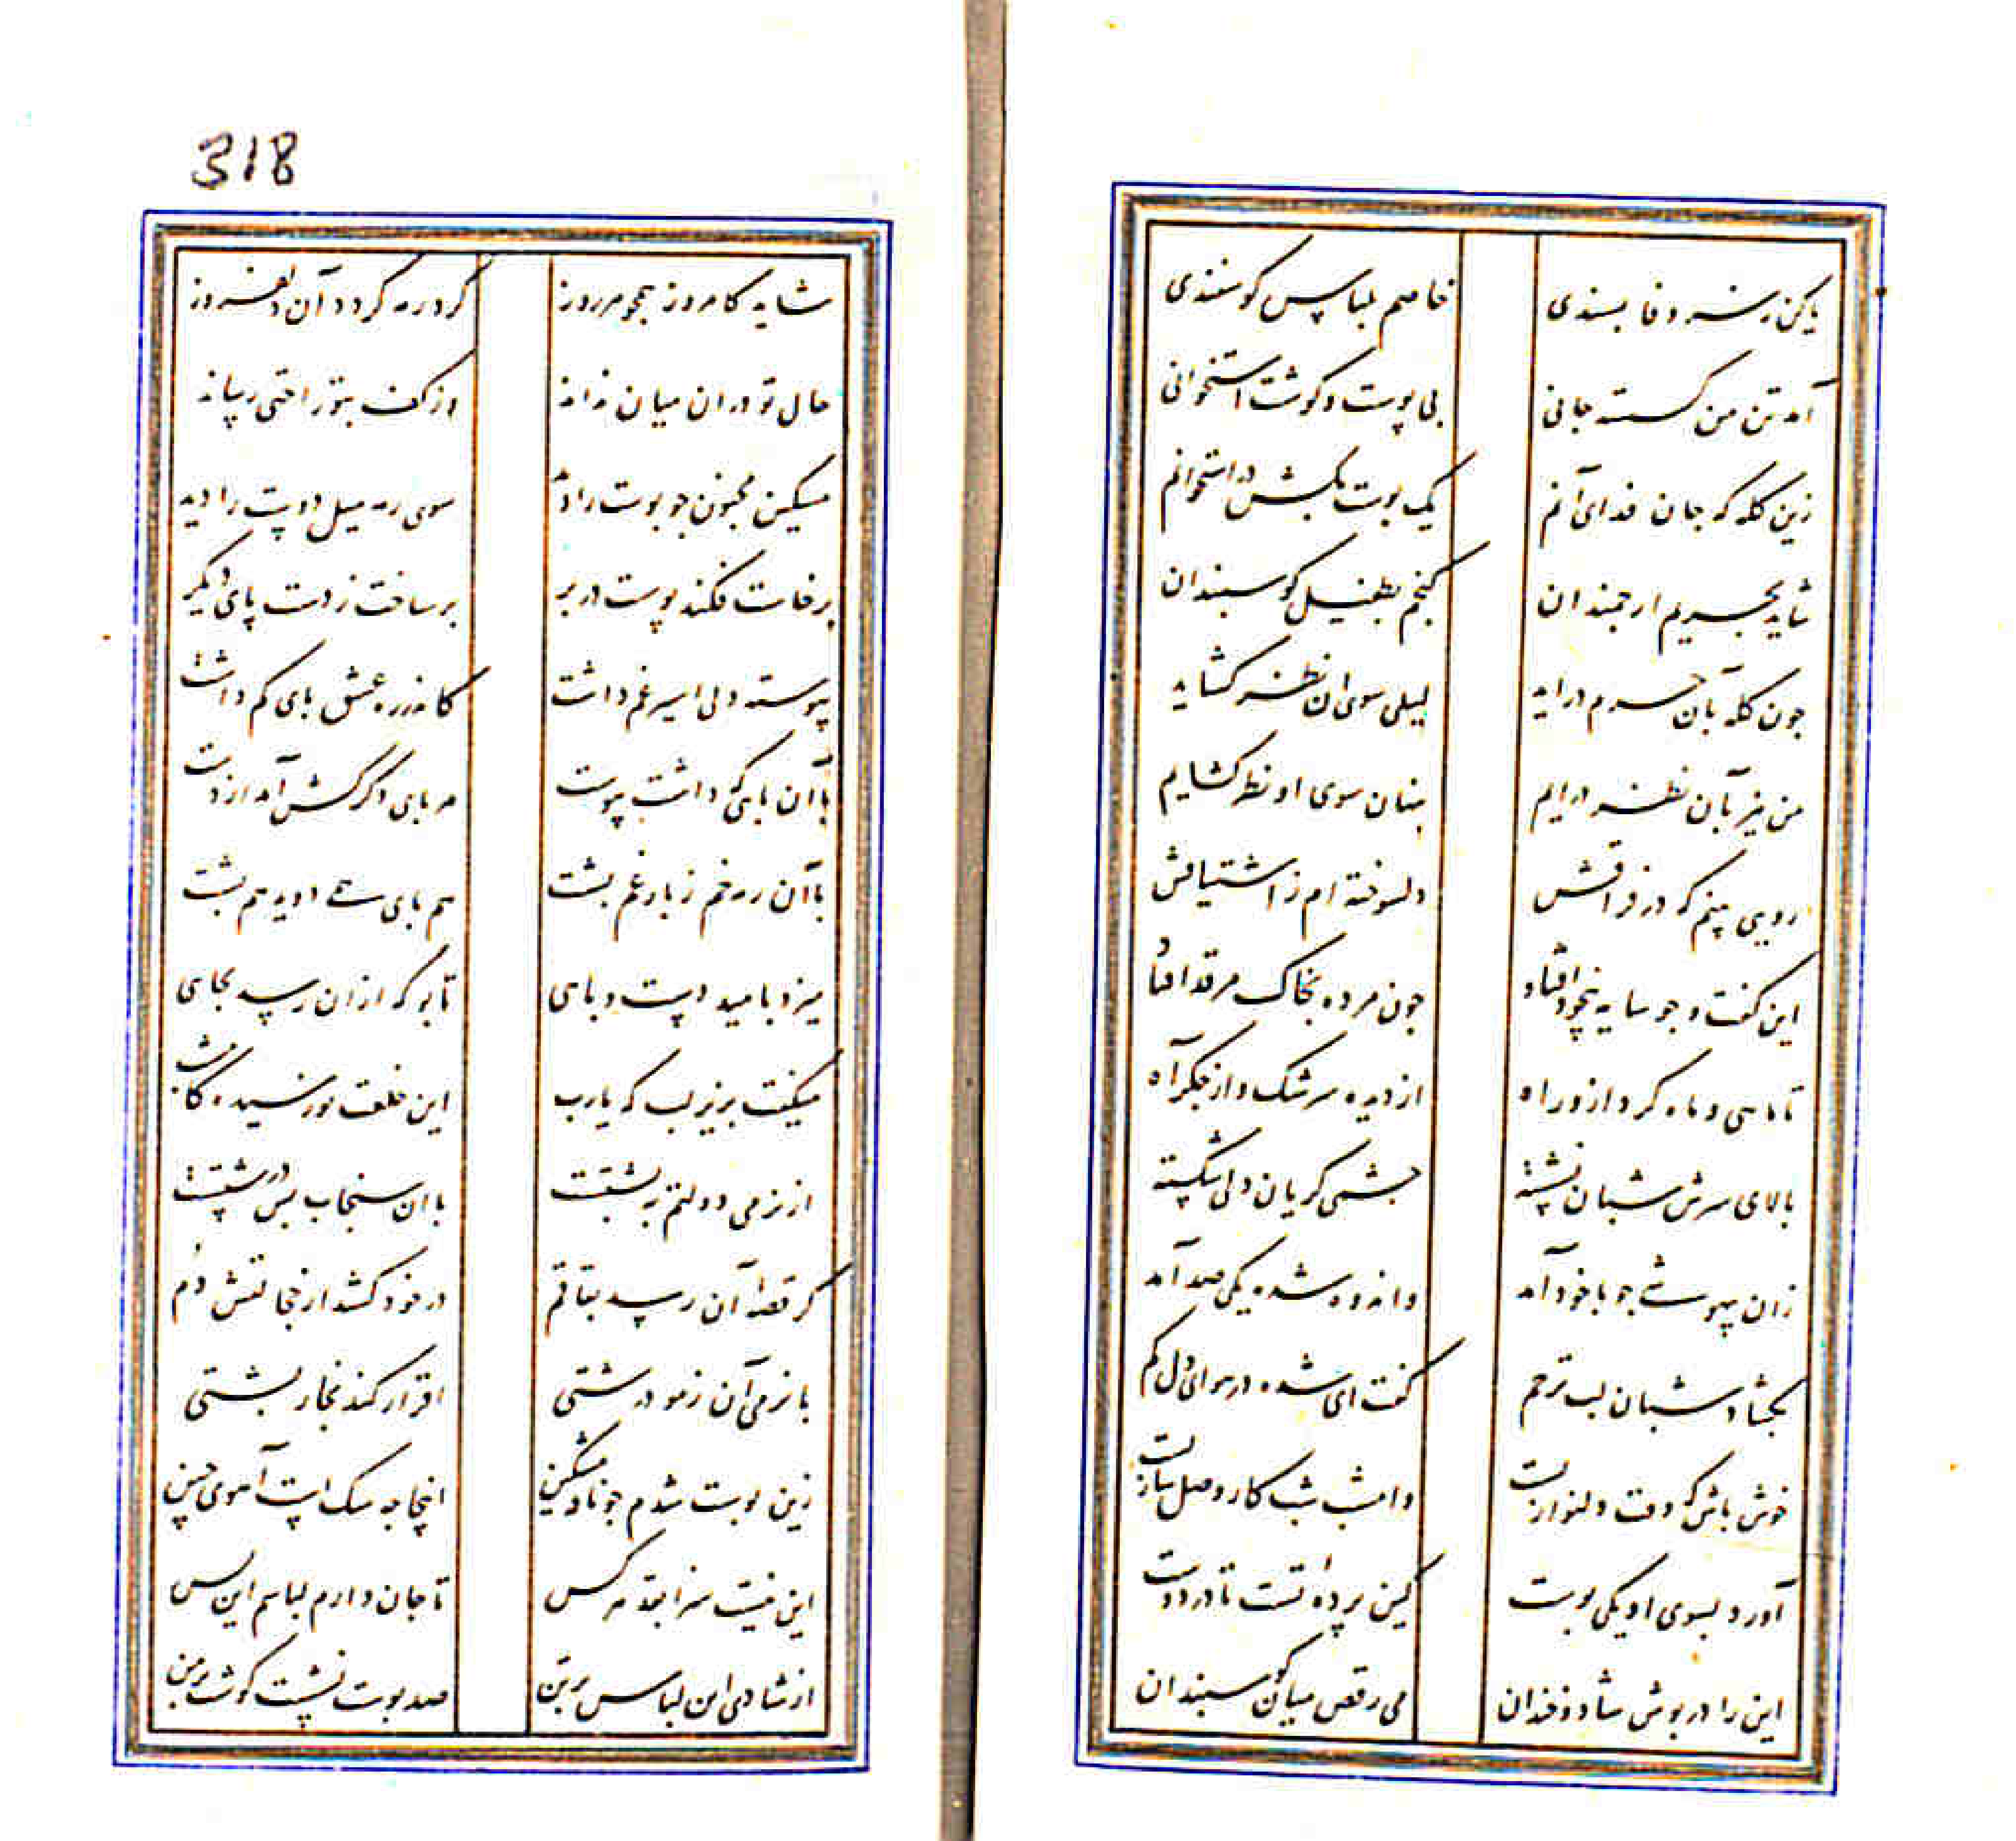 یا کن ز سر وفا بسندی
خاصم لباس کوسفندی
آمد تن من کسسته جانی
بی پوست و کوشت استخوانی
زین کله که جان فدای آنم
یک پوست بکش در استخوانم
شاید بحریم ارجمندان
کنجم بطفیل کوسبندان
چون کله بآن حرم دراید
لیلی سوی ان نظر کشاید
من نیز بآن نظر درایم
پنهان سوی او نظر کشایم
رویی بینم که در فراقش
دلسوخته ام ز اشتیاقش
این کفت و جو سایه بیخود افتاد
جون مرده بخاک مرقد افتاد
تا ماهی و ماه کرد ازو راه
از دیده سرشک و از جکر آه
بالای سرش شبان نشسته
جشمی کریان دلی شکسته
زان بیهوشی جو با خود آمد
واندوه شده یکی صد آمد
بکشاد شبان لب ترحم
کفت ای شده در هوای دل کم
خوش باش که وقت دلنوازیست
وامشب شب کار وصل سازیست
آورد بسوی او یکی پوست
کین پرده تست تا در دوست
این را در پوش شاد و خندان
می رقص میان کوسبندان
318
شاید کامروز همجو هر روز
کرد رمه کردد آن دلفروز
حال تو دران میان نداند
از کف بتو راحتی رساند
مسکین مجنون جو پوست را دید
سوی رمه میل دوست را دید
برخاست فکند پوست در بر
بر ساخت ز دست پای دیکر
پیوسته دلی اسیر غم داشت
کاندر ره عشق پای کم داشت
با آن پایی که داشت پیوست
هر پای دکر کش آمد از دست
با آن رمه خم ز بار غم پشت
هم پای همی دوید هم پشت
میزد بامید دست و پای
تا بو که ازان رسد بجای
میکفت بزیر لب که یارب
این خلعت نو رسیده کامشب
از نرمی دولتم بر پشتست
با ان سنجاب بس درشتست
کر قصه آن رسد بقاقم
در خود کشد از خجالتش دم
با نرمی آن ز مو درشتی
اقرار کند بخار پشتی
زین پوست شدم جو نافه مشکین
اینجا جه سک است آهوی چین
این نیست سزا بقد هر کس
تا جان دارم لباسم این بس
از شادی این لباس بر تن
صد پوست نشست کوشت بر من